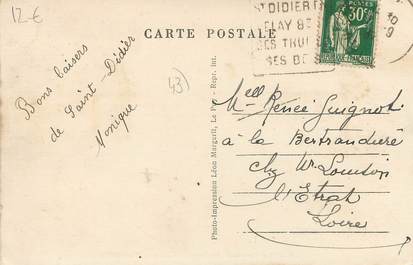 12 €
CARTE POSTALE
T DIDIER E
LAY 8
SES TRU
SES DE S
POSTES
30c
RÉPUBLIQUE FRANÇAISE
Bons baisers
de Saint-Didier
Monique
43)
Photo-Impression Léon Margerit, Le Puy - Repr. int.
Mlle Renée Guignot
à la Bertrandière
chz Mr
l'Etrat
Loire